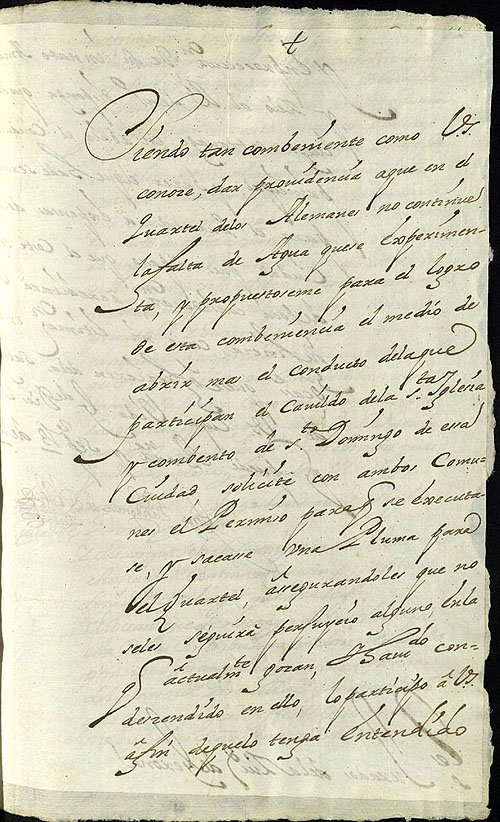 +
Siendo tan combeniente como V.S.
conoze, dar providencia aque en el
Quartel delos Alemanes no continue
la falta de Agua quese experimen-
ta, y propuestoseme para el logro
de esta combeniencia el medio de
abrir mas el conducto delaque
participan el Cavildo dela s.ta Yglesia
y combento de s.to Domingo de essa
Ciudad, solicité con ambos Comu-
nes el Permiso para q se executa-
se, y sacasse una Pluma para
el Quartel, asegurandoles que no
seles seguira perjuycio alguno, en la
q actualm.te gozan, Havido con-
deszendido en ello, lo participo à V.S.
à fin dequelo tenga entendido